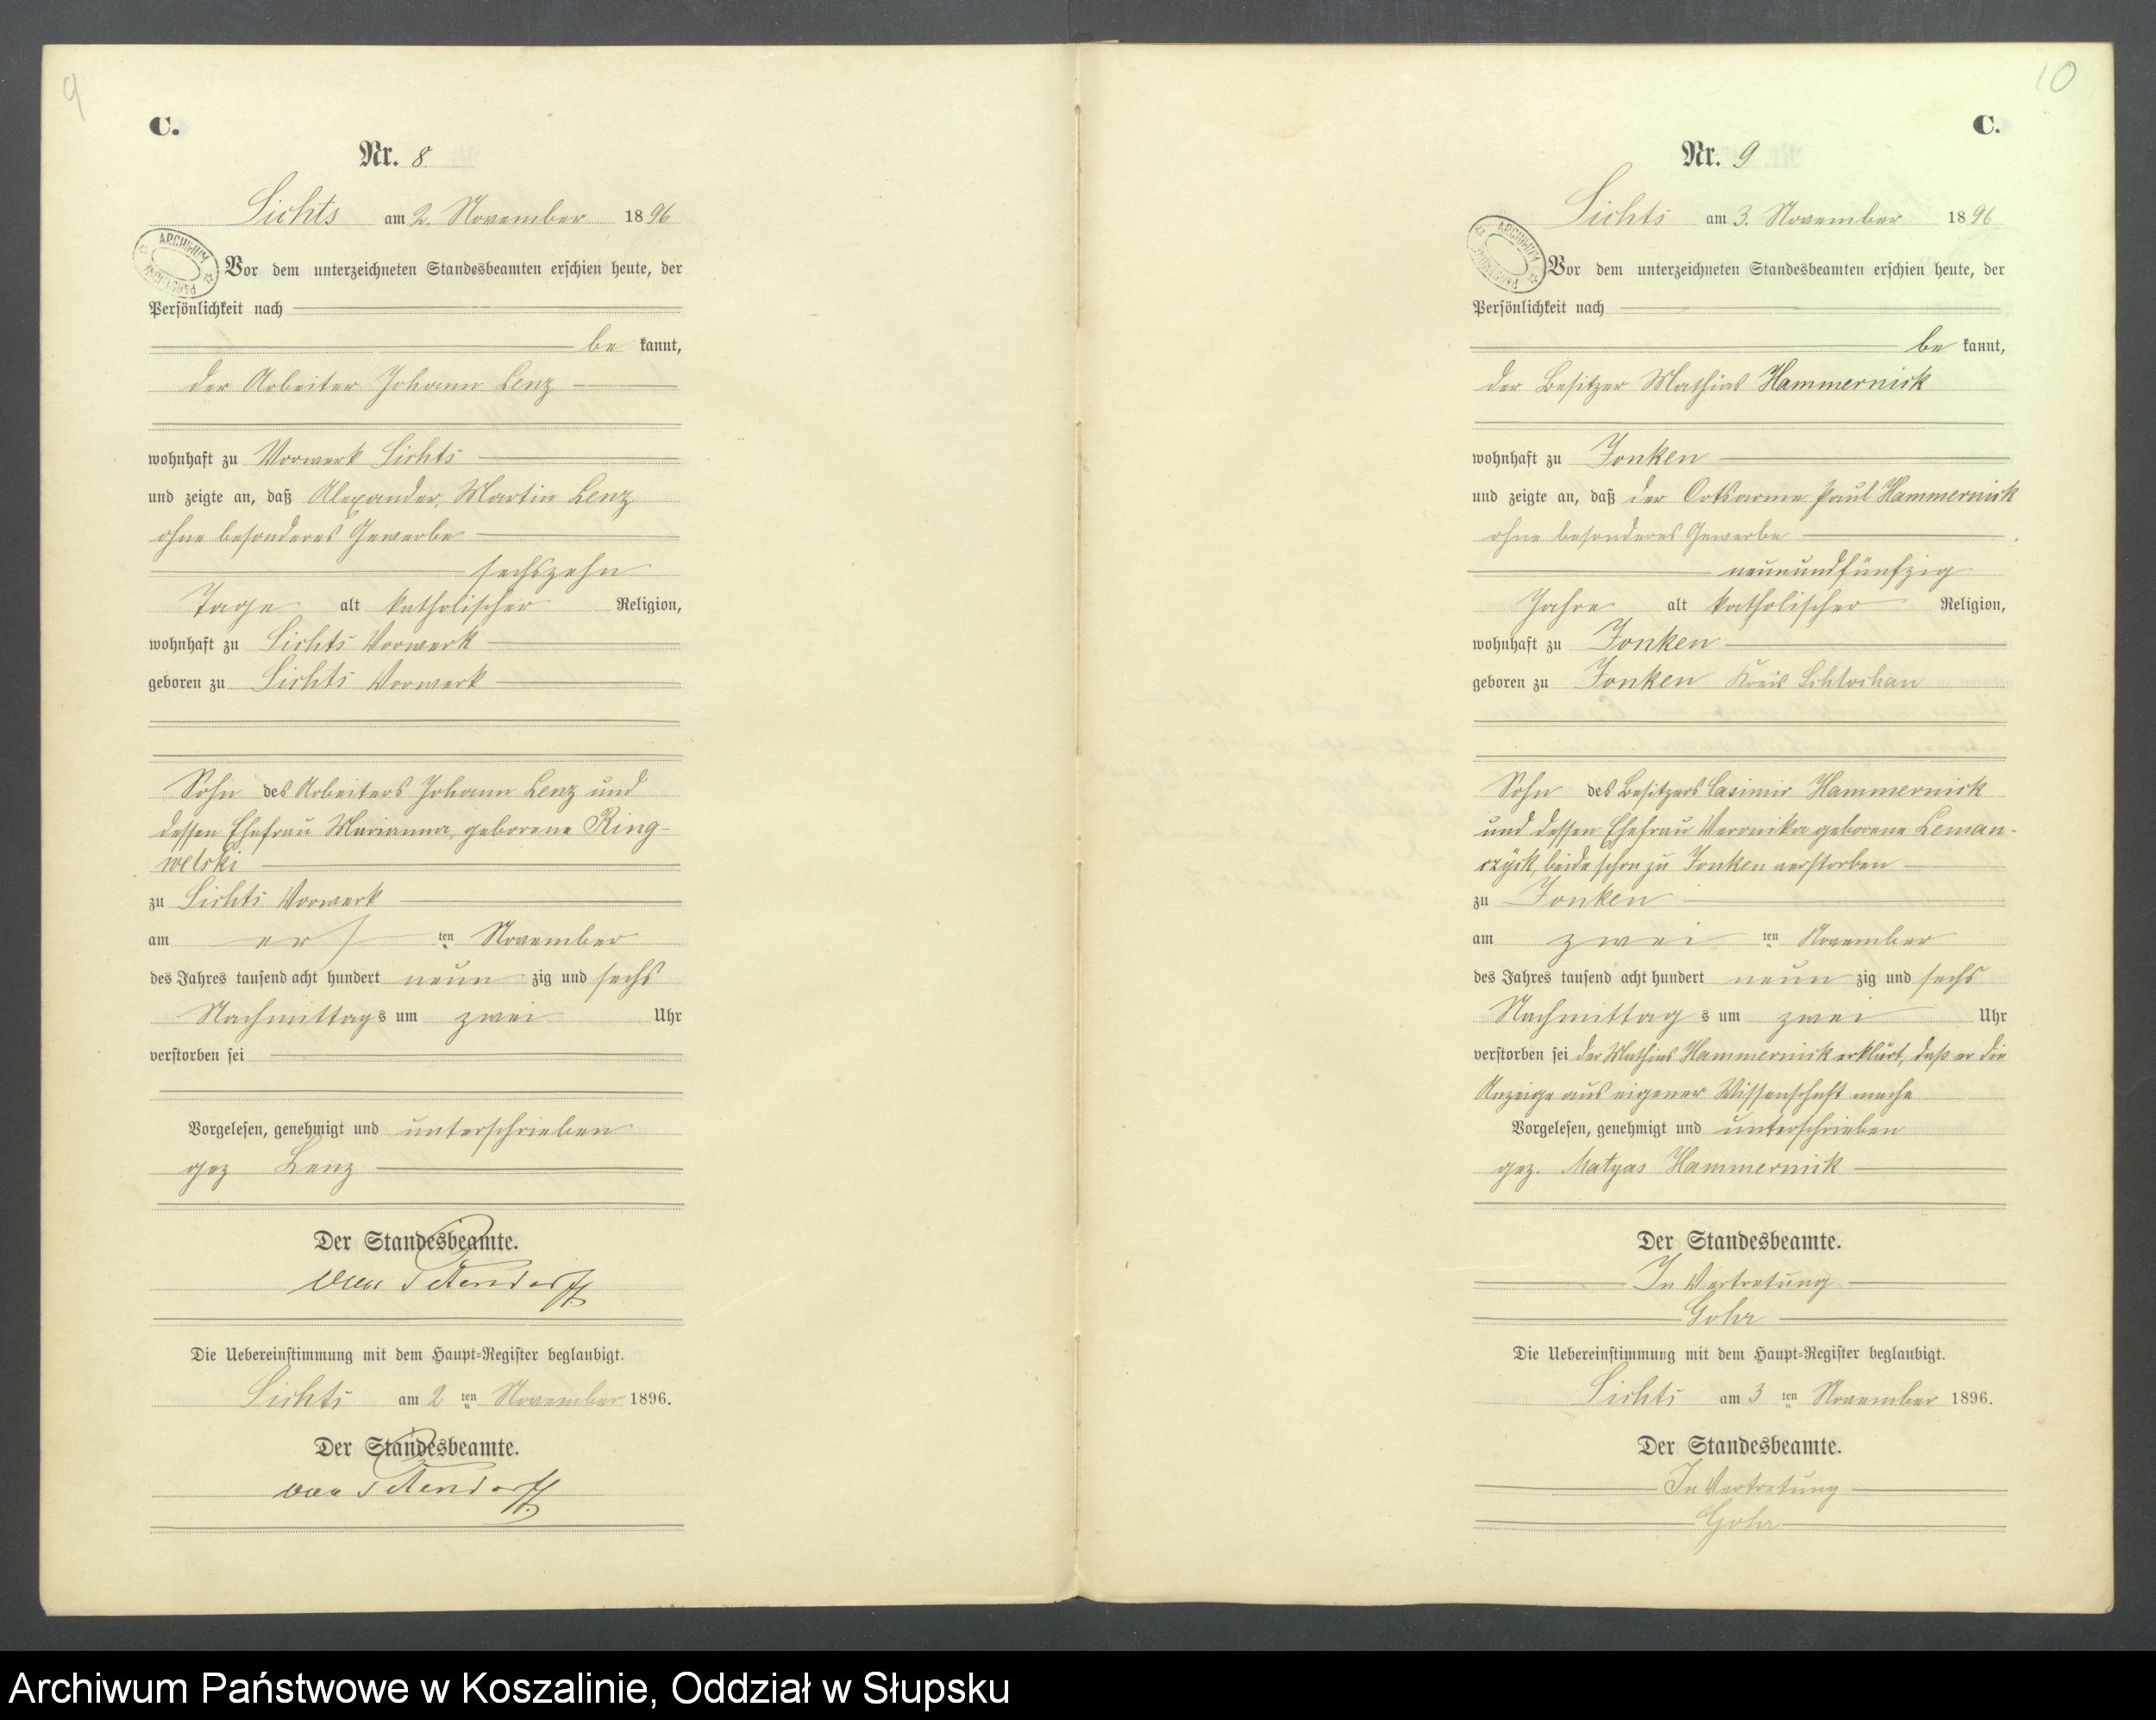 9
C.
Nr. 8
Lichts am 2. November 1896
ARCHIWUM
Vor dem unterzeichneten Standesbeamten erschien heute, der
Persönlichkeit nach
be kannt,
der Arbeiter Johann Lenz
wohnhaft zu Vorwerk Lichts
und zeigte an, daß Alexander, Martin Lenz
ohne besonderes Gewerbe
sechszehn
Tage alt katholischer Religion,
wohnhaft zu Lichts Vorwerk
geboren zu Lichts Vorwerk
Sohn des Arbeiters Johann Lenz und
dessen Ehefrau Marianna, geborene Ring-
welski
zu Lichts Vorwerk
am ers ten November
des Jahres tausend acht hundert neun zig und sechs
Nachmittags um zwei Uhr
verstorben sei
Vorgelesen, genehmigt und unterschrieben
gez Lenz
Der Standesbeamte.
Die Uebereinstimmung mit dem Haupt=Register beglaubigt.
Lichts am 2 ten November 1896.
Der Standesbeamte.
10
C.
Nr. 9
Lichts am 3. November 1896
ARCHIWUM
Vor dem unterzeichneten Standesbeamten erschien heute, der
Persönlichkeit nach
be kannt,
der Besitzer Mathias Hammernick
wohnhaft zu Jonken
und zeigte an, daß der Ortsarme Paul Hammernick
ohne besonderes Gewerbe
neunundfünfzig
Jahre alt katholischer Religion,
wohnhaft zu Jonken
geboren zu Jonken Kreis Schlochau
Sohn des Besitzers Casimir Hammernick
und dessen Ehefrau Veronika geborene Leman-
czyk, beide schon zu Jonken verstorben
zu Jonken
am zwei ten November
des Jahres tausend acht hundert neun zig und sechs
Nachmittag s um zwei Uhr
verstorben sei der Mathias Hammernick erklärt, daß er die
Anzeige aus eigener Wissenschaft mache
Vorgelesen, genehmigt und unterschrieben
gez. Matyas Hammernick
Der Standesbeamte.
In Vertretung
Gohr
Die Uebereinstimmung mit dem Haupt=Register beglaubigt.
Lichts am 3 ten November 1896.
Der Standesbeamte.
In Vertretung
Gohr
Archiwum Państwowe w Koszalinie, Oddział w Słupsku